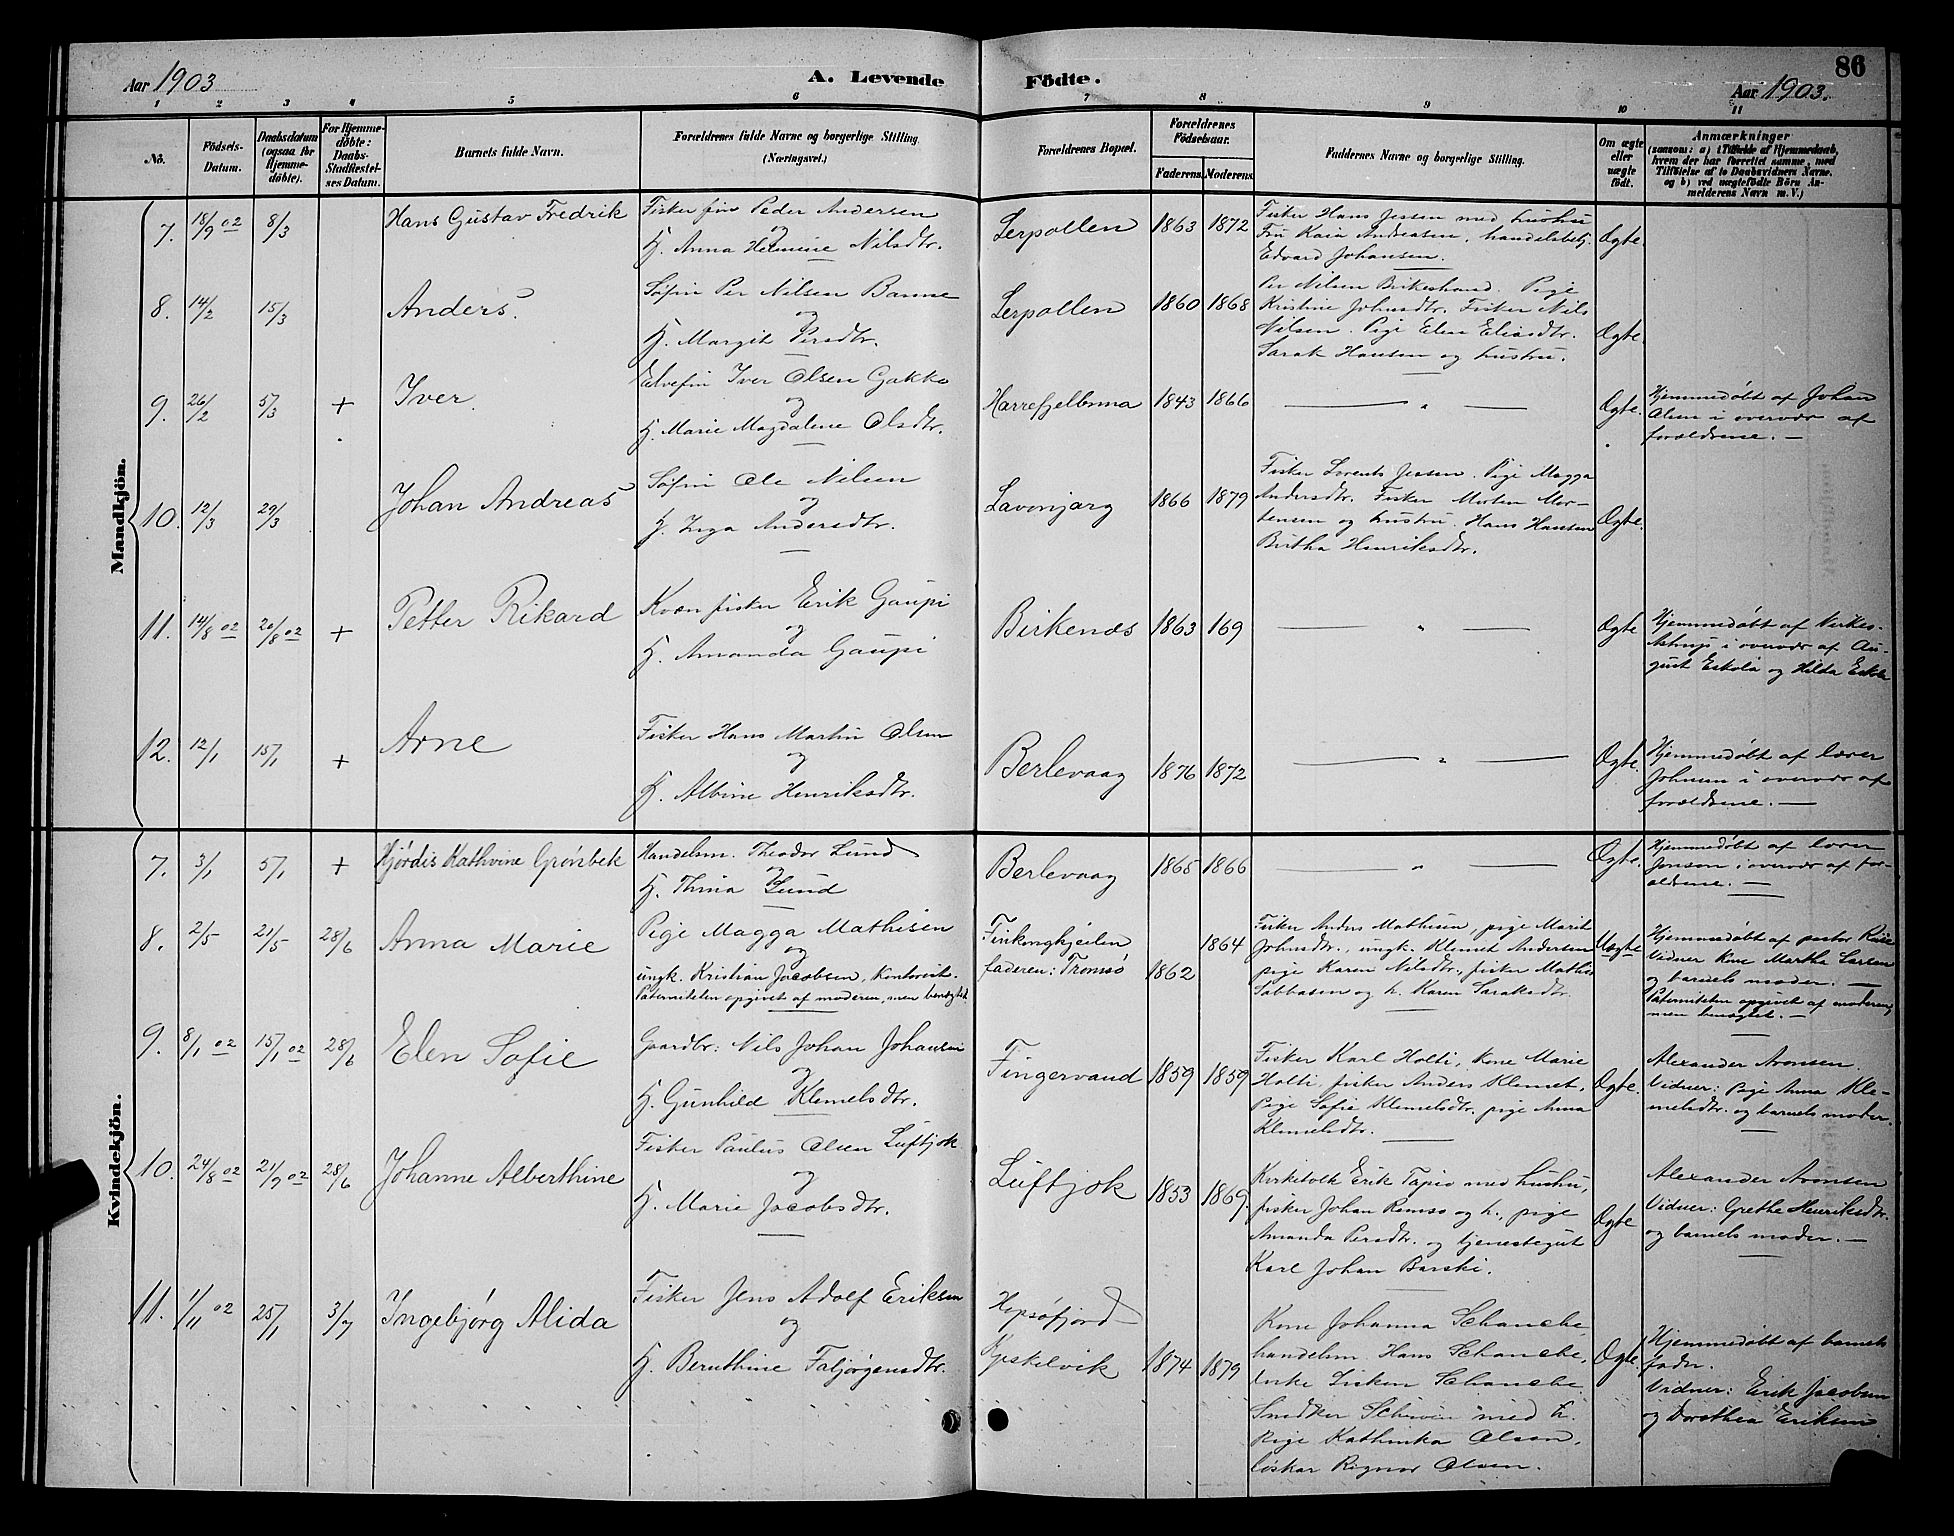 Aar 1903
A. Levende Födte.
Aar 1903.
86
1 2 3 4 5 6 7 8 9 10 11
No.
Födsels-Datum.
Daabsdatum (ogsaa for Hjemme-döbte).
For Hjemme-döbte: Daabs-Stadfæstel-ses Datum.
Barnets fulde Navn.
Forældrenes fulde Navne og borgerlige Stilling
(Næringsvei.)
Forældrenes Bopæl.
Forældrenes Födselsaar.
Faderens. Moderens.
Faddernes Navne og borgerlige Stilling.
Om ægte eller uægte födt.
Anmærkninger
(saasom: a) i Tilfælde af Hjemmedaab,
hvem der har forrettet samme, med
Tilföielse af to Daabsvidners Navne,
og b) ved uægtefödte Börn An-
melderens Navn m. V.)
Mandkjön.
7. 18/9 02 8/3 Hans Gustav Fredrik
Fisker fin Peder Andersen
og
H. Anna Helmine Nilsdtr.
Lerpollen 1863 1872
Fisker Hans Jessen med hustru
Fru Kaia Andreasen, handelsbetj.
Edvard Johansen.
Ægte
8. 14/2 15/3 Anders.
Søfin Per Nilsen Banne
og
H. Margit Persdtr.
Lerpollen 1860 1868
Per Nilsen Birkestrand. Pige
Kristine Johnsdtr. Fisker Nils
Nilsen. Pige Elen Eliasdtr.
Sarak Hansen og hustru.
Ægte.
9. 26/2 5/3 + Iver.
Elvefin Iver Olsen Gakko
og
H. Marie Magdalene Olsdtr.
Harrefjelbma 1843 1866
— " —
Ægte.
Hjemmedøbt af Johan
Olsen i overvær af
forældrene. —
10. 12/3 29/3 Johan Andreas
Søfin Ole Nilsen
og
H. Inga Andersdtr.
Lavonjarg 1866 1879
Fisker Lorents Jessen. Pige Magga
Andersdtr. Fisker Morten Mor-
tensen og hustru. Hans Hansen
Birtha Henriksdtr.
Ægte.
11. 14/8 02 20/8 02 + Petter Rikard
Kvæn fisker Erik Gaupi
og
H. Amanda Gaupi
Birkenæs 1863 169
— " —
Ægte
Hjemmedøbt af
Astrup i overvær af Au-
gust Eskola og Hilda Eskola
12. 12/1 15/1 + Arne
Fisker Hans Martin Olsen
og
H. Albine Henriksdtr.
Berlevaag 1876 1872
— " —
Ægte.
Hjemmedøbt af lærer
Johnsen i overvær af
forældrene. —
Kvindekjön.
7. 3/1 5/1 + Hjørdis Kathrine Grønbek
Handelsm. Theodor Lund
og
H. Thina Lund
Berlevaag 1865 1866
— " —
Ægte.
Hjemmedøbt af lærer
Jonson i overvær af for-
ældrene. —
8. 2/5 21/5 28/6 Anna Marie
Pige Magga Mathisen
og
ungk. Kristian Jacobsen, Kontorist.
Paterniteten opgivet af moderen, men benegtet
Finkongkjeilen
faderen: Tromsø 1862 1864
Fisker Anders Mathisen, pige Marit
Johnsdtr., ungk. Klemet Andersen
pige Karen Nilsdtr., fisker Mathis
Sabbasen og h. Karen Saraksdtr.
Uægte
Hjemmedøbt af pastor
Vidner Kone Martha Larsen
og barnets moder. —
Paterniteten opgivet af moderen,
men benegtet. —
9. 8/1 02 15/1 02 28/6 Elen Sofie
Gaardbr: Nils Johan Johansen
og
H. Gunhild Klemetsdtr.
Fingervand 1859 1859
Fisker Karl Holti, kone Marie
Holti, fisker Anders Klemet,
Pige Sofie Klemetsdtr. pige Anna
Klemetsdtr.
Ægte.
Alexander Aronsen.
Vidner: pige Anna Kle-
metsdtr. og barnets moder.
10. 24/8 02 21/9 02 28/6 Johanne Alberthine
Fisker Paulus Olsen Luftjok
og
H. Marie Jacobsdtr.
Luftjok 1853 1869.
Kirketolk Erik Tapio med hustru,
fisker Johan Remso og h., pige
Amanda Persdtr. og tjenestegut
Karl Johan Barski.
Ægte
Alexander Aronsen
Vidner: Grethe Henriksdtr.
og barnets moder. —
11. 1/11 02 25/1 3/7 Ingebjørg Alida
Fisker Jens Adolf Eriksen
og
H. Beruthine Faljørgensdtr.
Hopsøfjord
Kjeskelvik 1874 1879
Kone Johanna Schanche,
handelsm Hans Schanche,
Schanche
Snedker med h.
Pige Kathinka Olsen,
Ragnar Olsen.
Ægte
Hjemmedøbt af barnets
fader.
Vidner: Erik Jacobsen
og Dorothea Eriksen